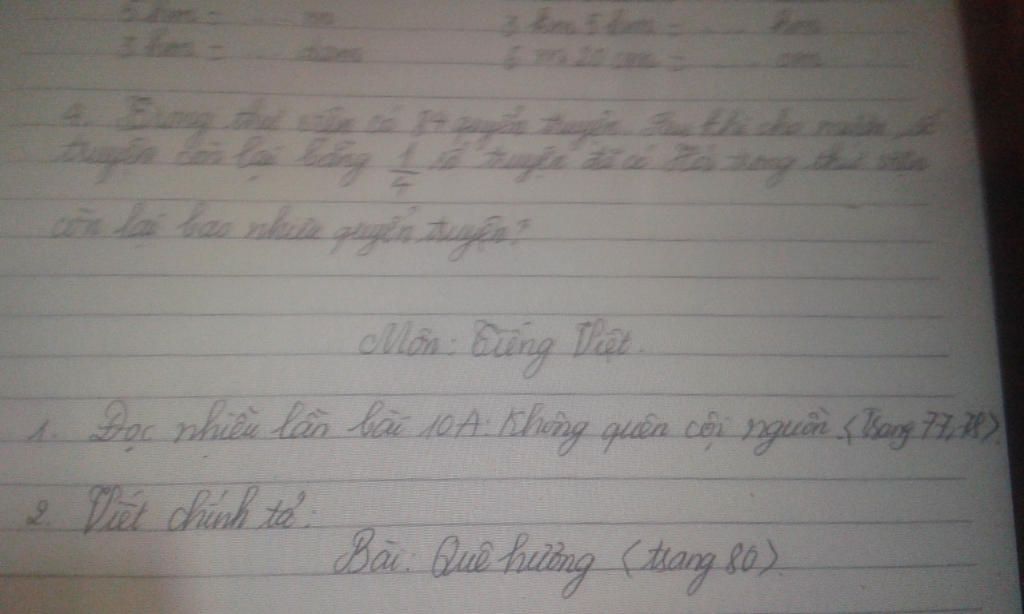 5 hm = ... m 3 km 5 hm = ... hm
3 hm = ... dam 6 m 20 cm = ... cm
4. Trong thư viện có 84 quyển truyện. Sau khi cho mượn, số
truyện còn lại bằng 1/4 số truyện đã có. Hỏi trong thư viện
còn lại bao nhiêu quyển truyện?
Môn: Tiếng Việt.
1. Đọc nhiều lần bài 10A: Không quên cội nguồn. (Trang 77, 78).
2. Viết chính tả:
Bài: Quê hương (trang 80)